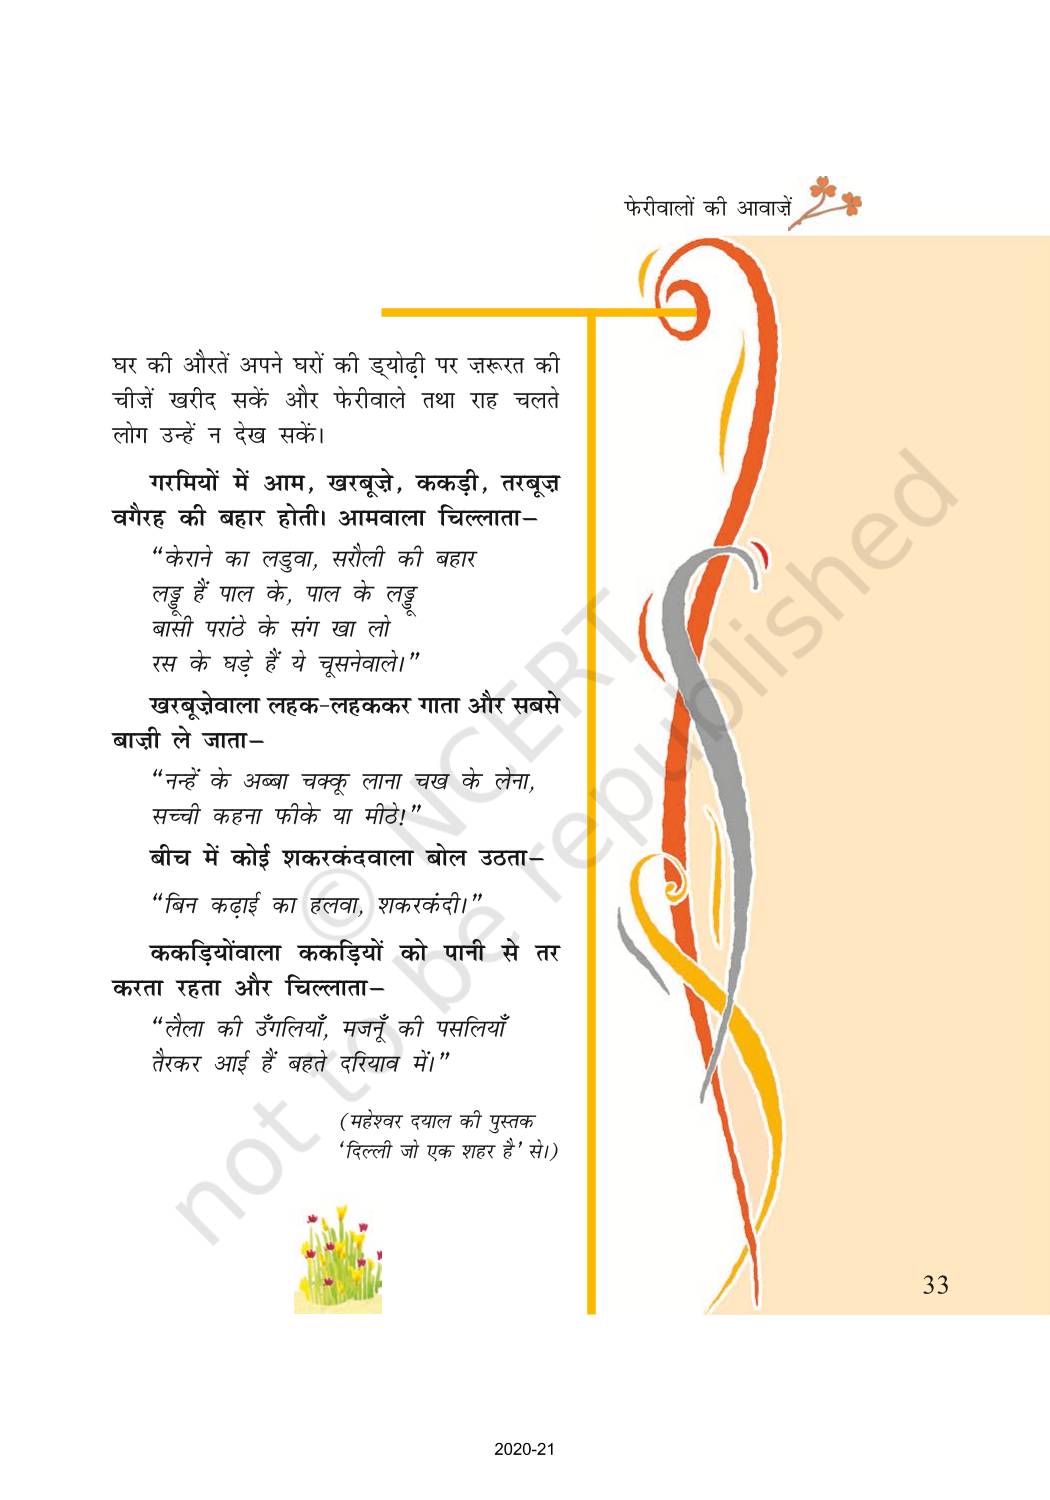 फेरीवालों की आवाज़ें
घर की औरतें अपने घरों की ड्योढ़ी पर ज़रूरत की
चीज़ें खरीद सकें और फेरीवाले तथा राह चलते
लोग उन्हें न देख सकें।
गरमियों में आम, खरबूज़े, ककड़ी, तरबूज़
वगैरह की बहार होती। आमवाला चिल्लाता–
“केराने का लडुवा, सरौली की बहार
लड्डू हैं पाल के, पाल के लड्डू
बासी परांठे के संग खा लो
रस के घड़े हैं ये चूसनेवाले।”
खरबूज़ेवाला लहक-लहककर गाता और सबसे
बाज़ी ले जाता–
“नन्हें के अब्बा चक्कू लाना चख के लेना,
सच्ची कहना फीके या मीठे!”
बीच में कोई शकरकंदवाला बोल उठता–
“बिन कढ़ाई का हलवा, शकरकंदी।”
ककड़ियोंवाला ककड़ियों को पानी से तर
करता रहता और चिल्लाता–
“लैला की उँगलियाँ, मजनूँ की पसलियाँ
तैरकर आई हैं बहते दरियाव में।”
(महेश्वर दयाल की पुस्तक
‘दिल्ली जो एक शहर है’ से।)
© NCERT
not to be republished
33
2020-21